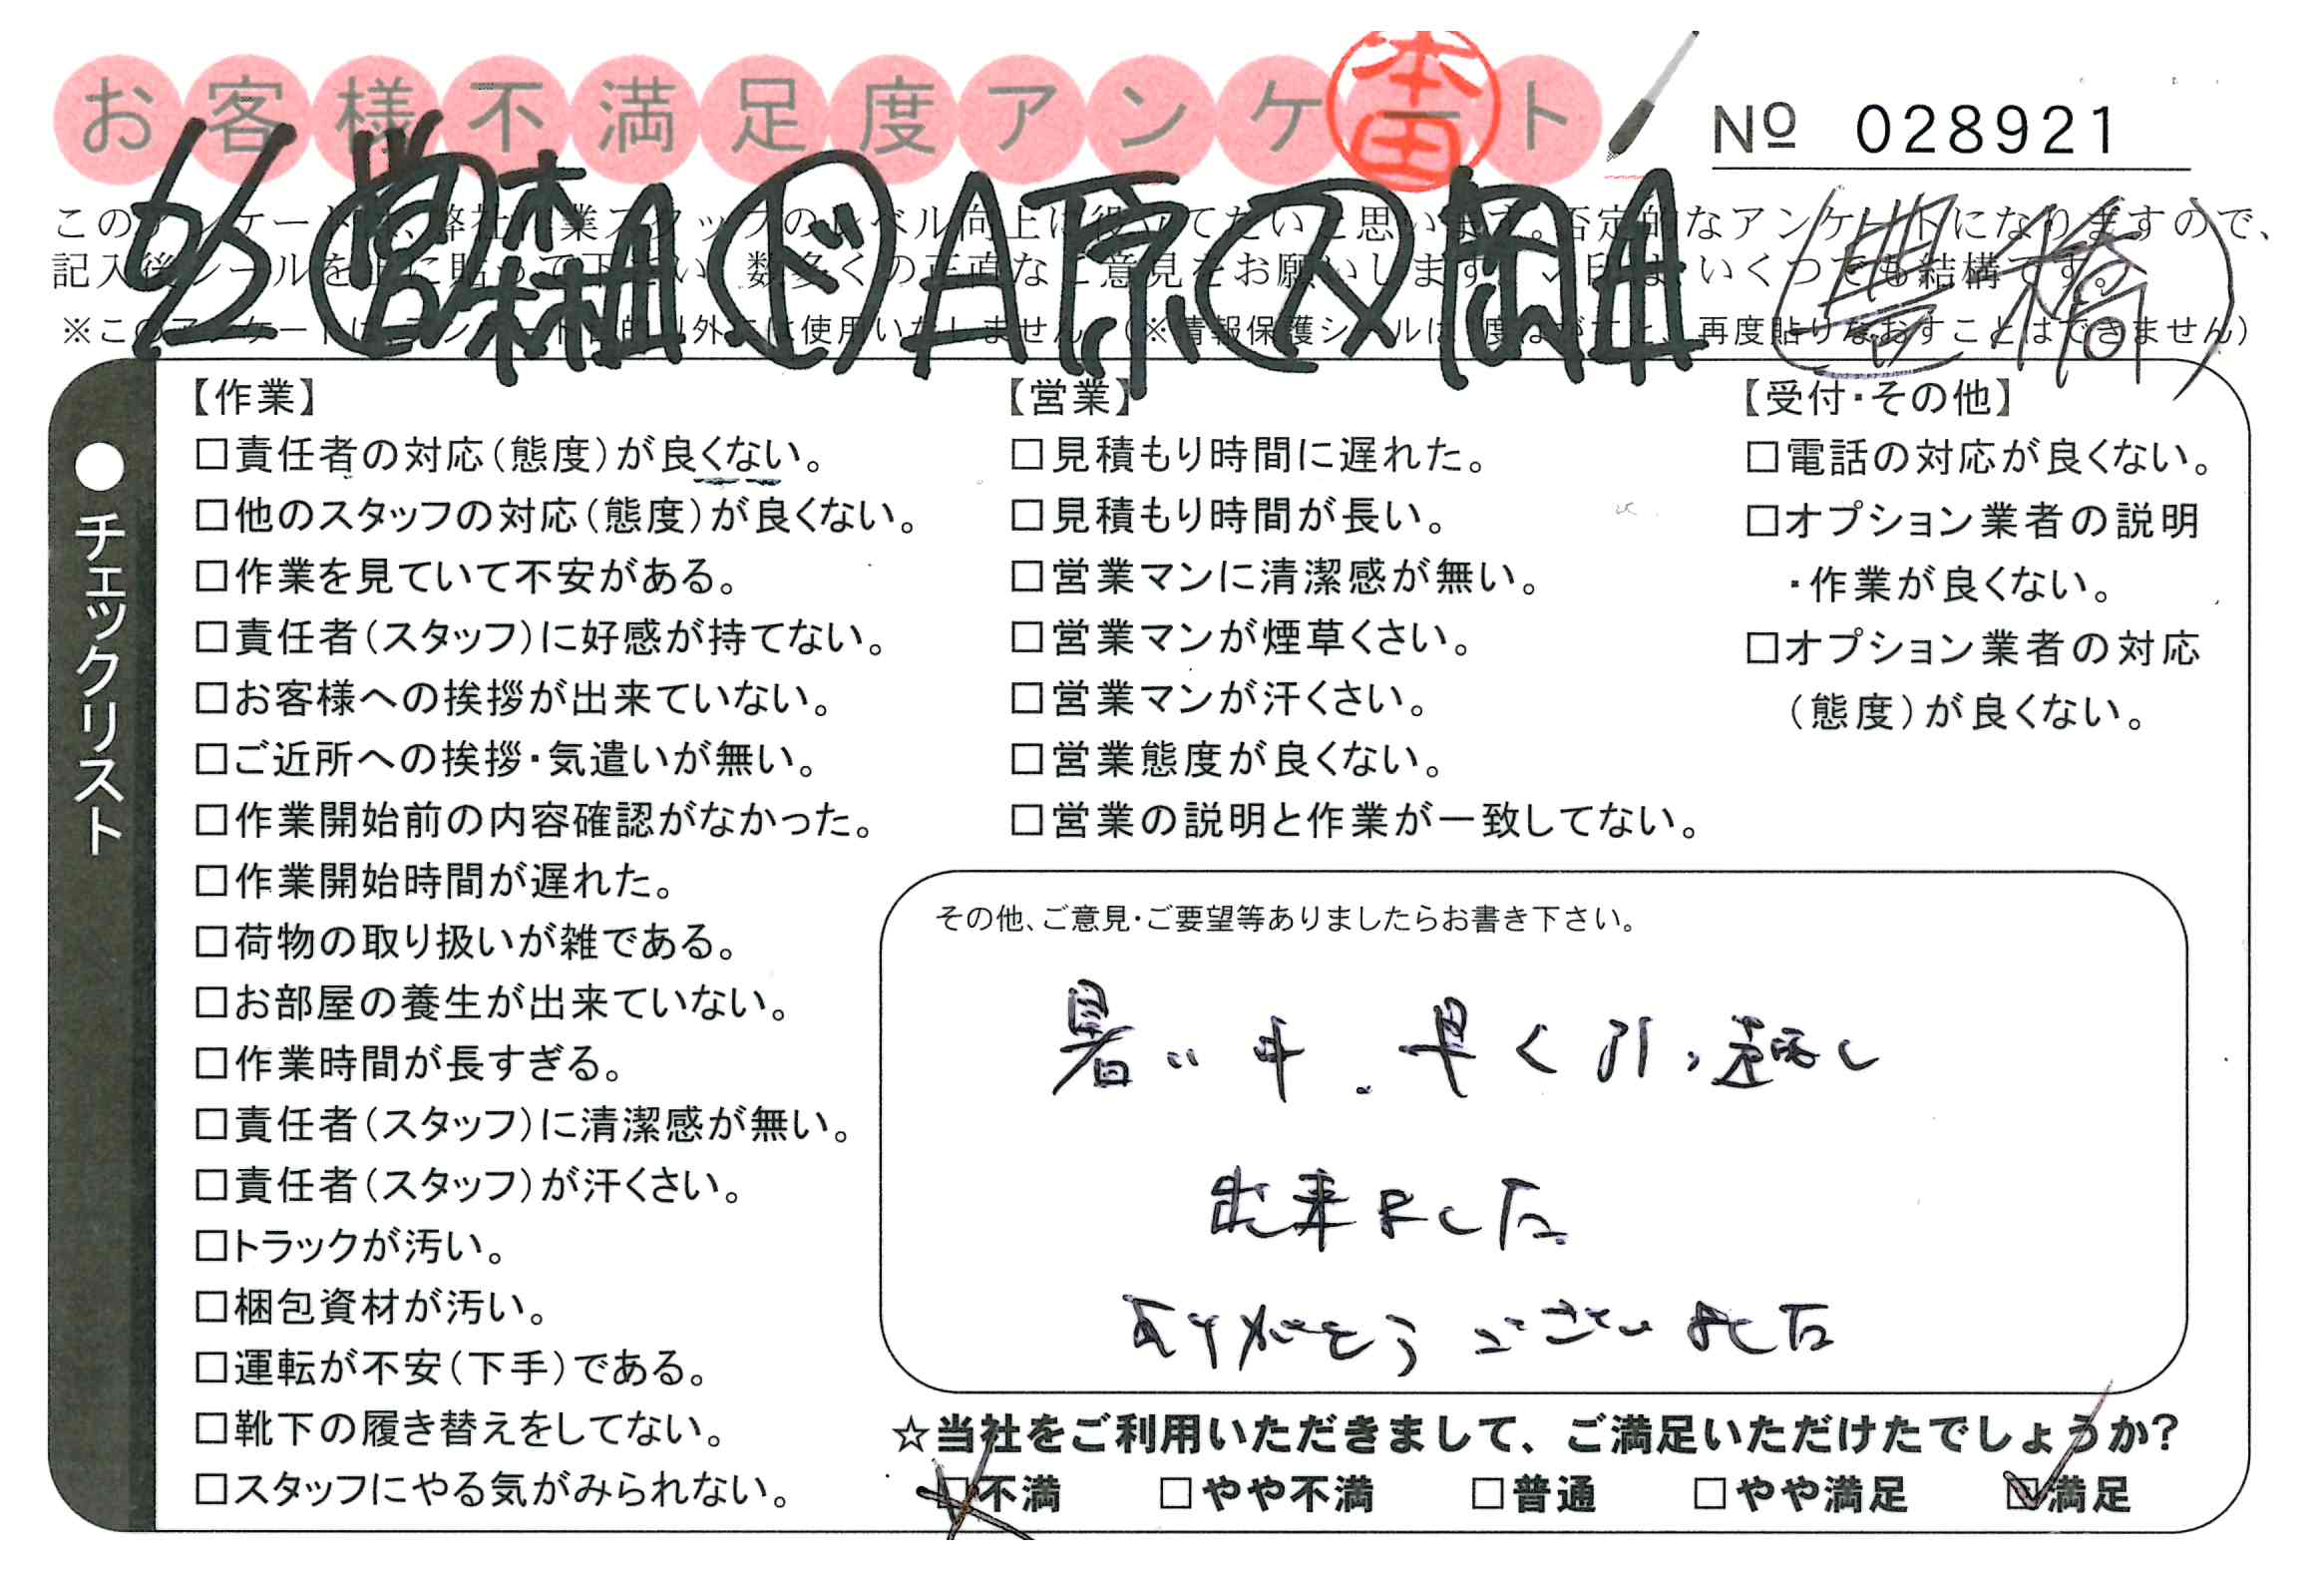 お客様不満足度アンケート
本田
№ 028921
(豊橋)
このアンケートは、弊社作業スタッフのレベル向上に役立てたいと思います。否定的なアンケートになりますので、
記入後シールを上に貼って下さい。数多くの正直なご意見をお願いします。✓印はいくつでも結構です。
※このアンケートは、アンケート目的以外には使用いたしません。(※情報保護シールは1度はがすと、再度貼りなおすことはできません)
●チェックリスト
【作業】
□責任者の対応(態度)が良くない。
□他のスタッフの対応(態度)が良くない。
□作業を見ていて不安がある。
□責任者(スタッフ)に好感が持てない。
□お客様への挨拶が出来ていない。
□ご近所への挨拶・気遣いが無い。
□作業開始前の内容確認がなかった。
□作業開始時間が遅れた。
□荷物の取り扱いが雑である。
□お部屋の養生が出来ていない。
□作業時間が長すぎる。
□責任者(スタッフ)に清潔感が無い。
□責任者(スタッフ)が汗くさい。
□トラックが汚い。
□梱包資材が汚い。
□運転が不安(下手)である。
□靴下の履き替えをしてない。
□スタッフにやる気がみられない。
【営業】
□見積もり時間に遅れた。
□見積もり時間が長い。
□営業マンに清潔感が無い。
□営業マンが煙草くさい。
□営業マンが汗くさい。
□営業態度が良くない。
□営業の説明と作業が一致してない。
【受付・その他】
□電話の対応が良くない。
□オプション業者の説明
・作業が良くない。
□オプション業者の対応
(態度)が良くない。
その他、ご意見・ご要望等ありましたらお書き下さい。
暑い中、早く引っ越し
出来ました
ありがとうございました
☆当社をご利用いただきまして、ご満足いただけたでしょうか?
□不満 □やや不満 □普通 □やや満足 ☑満足